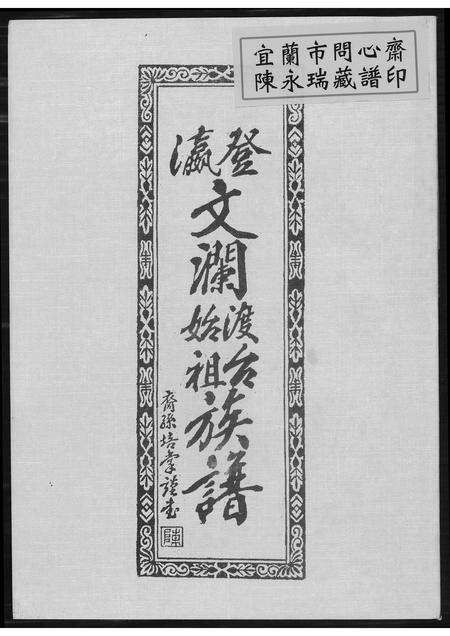 宜蘭市問心齋
陳永瑞藏譜印
登瀛
文瀾
渡台
始祖
族譜
裔孫培掌謹書